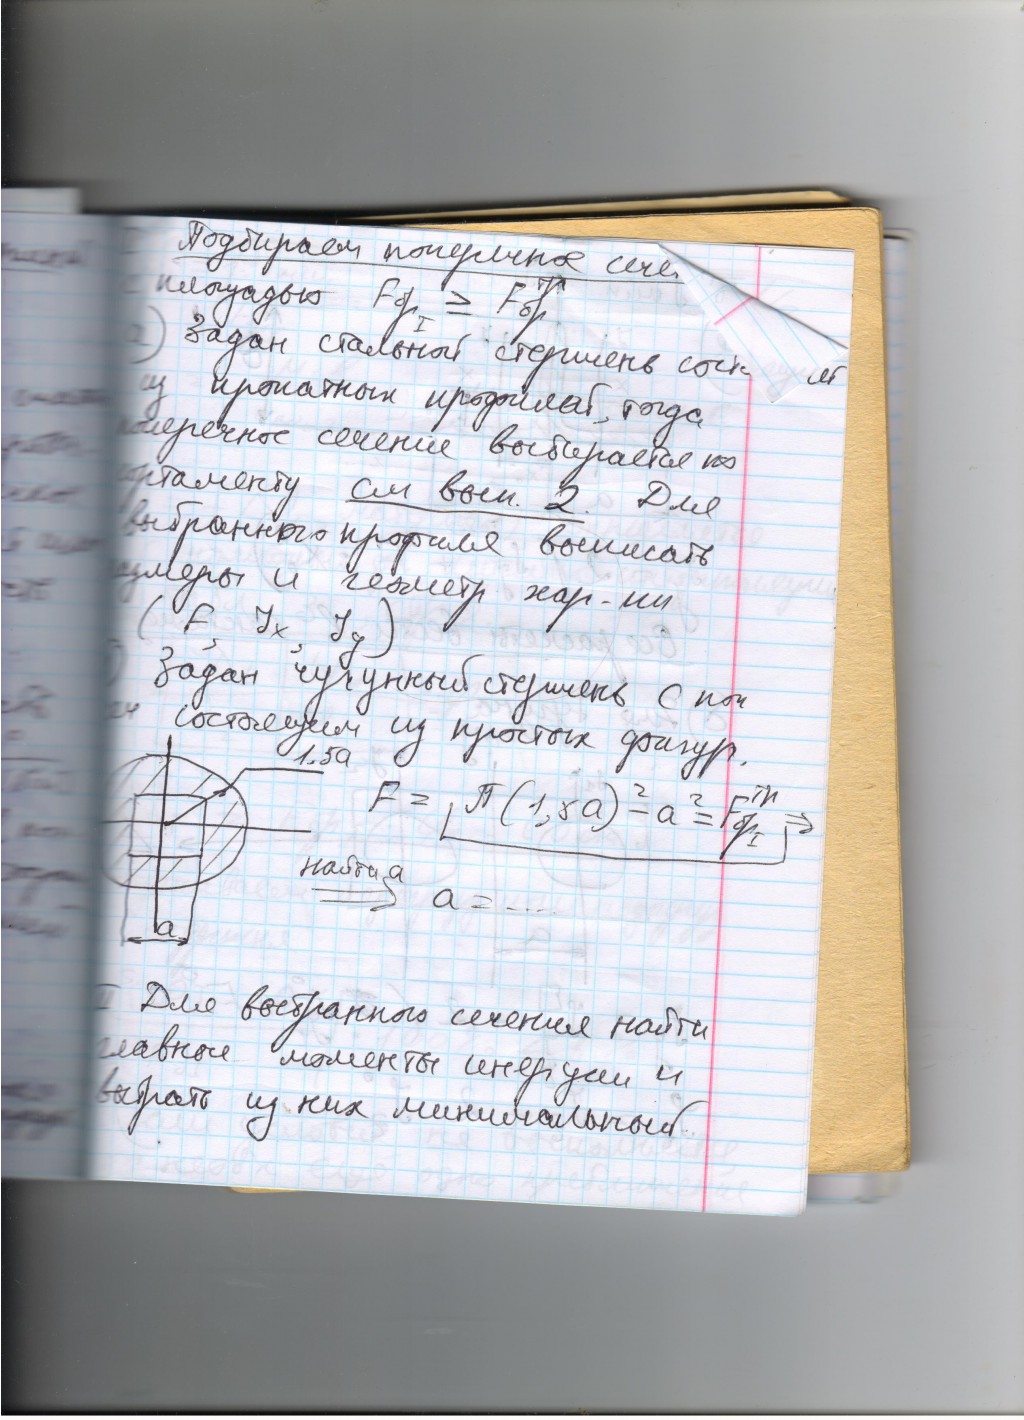 Подбираем поперчное сече
площадью Fбр I ≥ Fбр тр
а) Задан стальной стержень сост ит
из прокатных профилей, тогда
поперечное сечение выбирается по
сортаменту см вып. 2. Для
выбранного профиля выписать
размеры и геометр хар-ки
(F, Jx, Jy)
) Задан чугунный стержень с поп
состоящим из простых фигур.
1.5a
F = П(1,5a)² - a² = Fбр I тр ⇒
найти a
a = ....
a
II Для выбранного сечения найти
главные моменты инерции и
выбрать из них минимальный